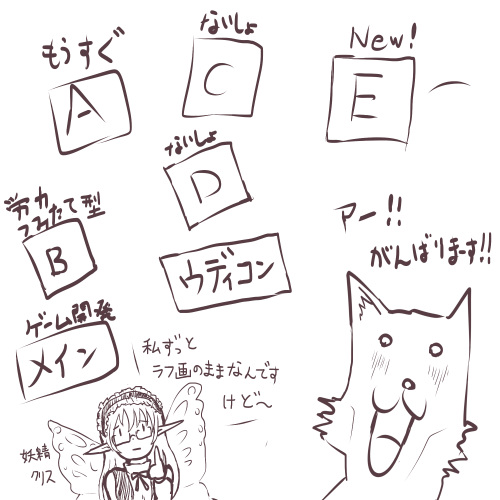 もうすぐ
A
ないしょ
C
New!
E
ないしょ
D
労力
つみたて型
B
ウディコン
ゲーム開発
メイン
アー!!
がんばりまーす!!
私ずっと
ラフ画のままなんです
けど〜
妖精
クリス